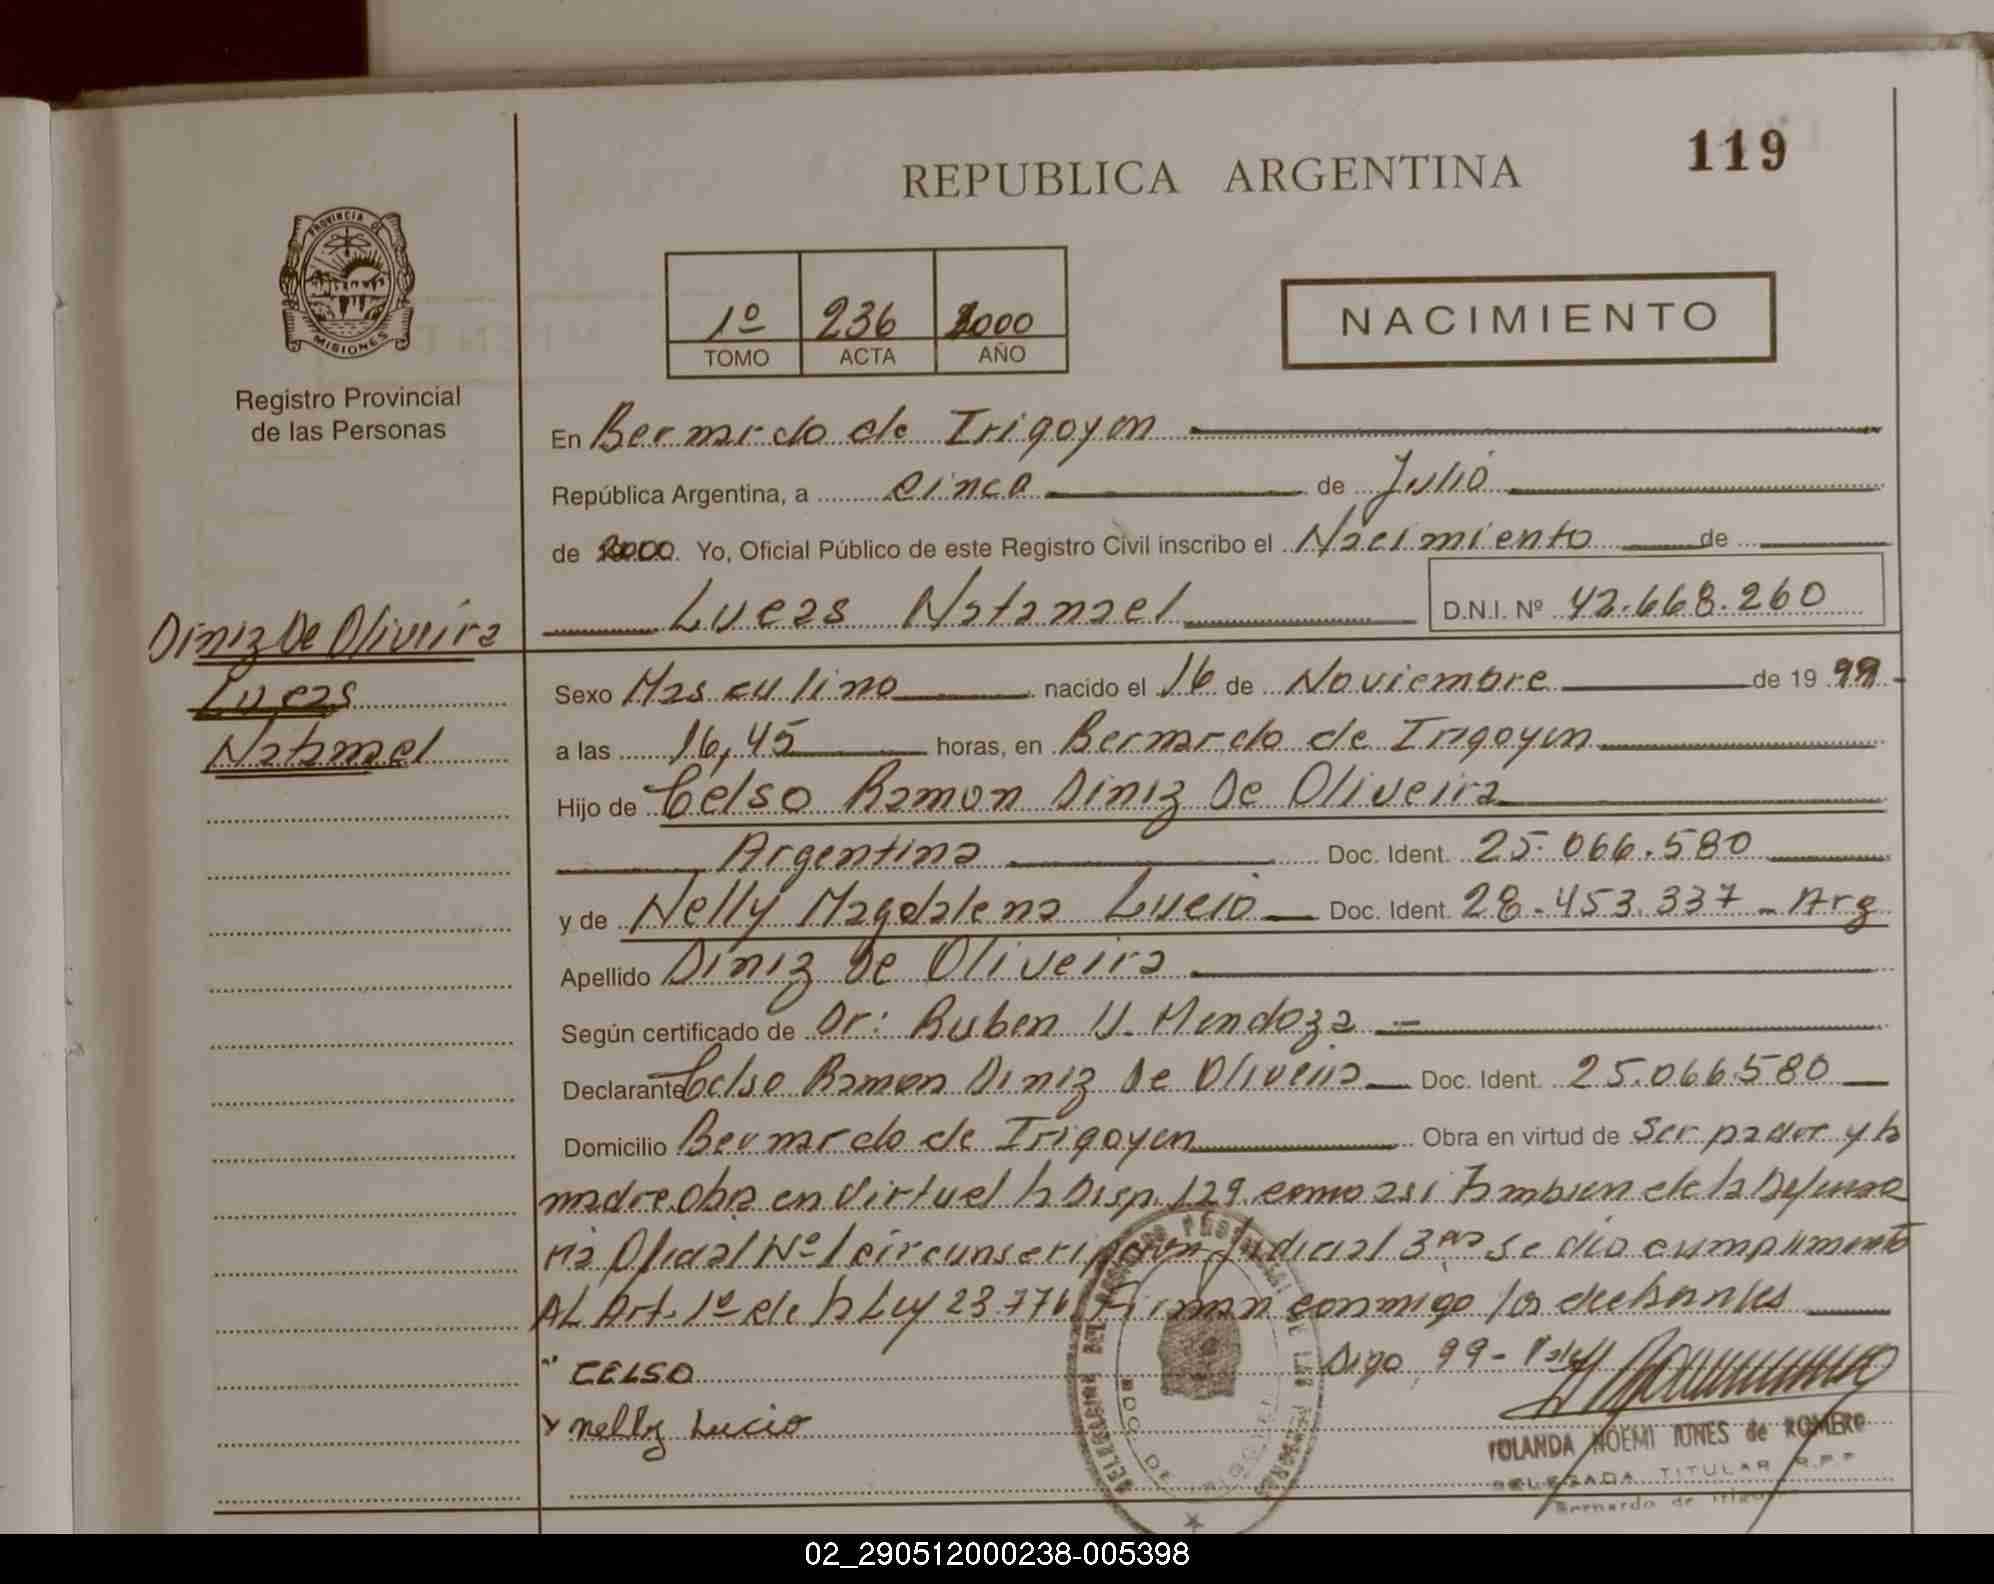 119
REPUBLICA ARGENTINA
PROVINCIA DE
MISIONES
Registro Provincial
de las Personas
1º 236 2000
TOMO ACTA AÑO
NACIMIENTO
En Bernardo de Irigoyen
República Argentina, a cinco de Julio
de 2000. Yo, Oficial Público de este Registro Civil inscribo el Nacimiento de
Lucas Natanael D.N.I. Nº 42.668.260
Diniz De Oliveira
Lucas
Natanael
Sexo Masculino nacido el 16 de Noviembre de 19 99
a las 16,45 horas, en Bernardo de Irigoyen
Hijo de Celso Ramon Diniz De Oliveira
Argentina Doc. Ident. 25.066.580
y de Nelly Magdalena Lucio Doc. Ident. 28.453.337 - Arg
Apellido Diniz De Oliveira
Según certificado de Dr: Ruben U. Mendoza
Declarante Celso Ramon Diniz De Oliveira Doc. Ident. 25.066.580
Domicilio Bernardo de Irigoyen Obra en virtud de Ser padre y la
madre obra en virtud la Disp. 129 como asi Tambien de la Defenso
ria Oficial Nº 1 circunscripcion Judicial 3ra se dio cumplimento
AL Art. 1º de la Ley 23.776 Firman conmigo los declarantes
CELSO Digo 99 - Vale
Nelly Lucio
YOLANDA NOEMI JUNES de ROMERO
DELEGADA TITULAR R.P.P
Bernardo de Irigoyen
02_290512000238-005398